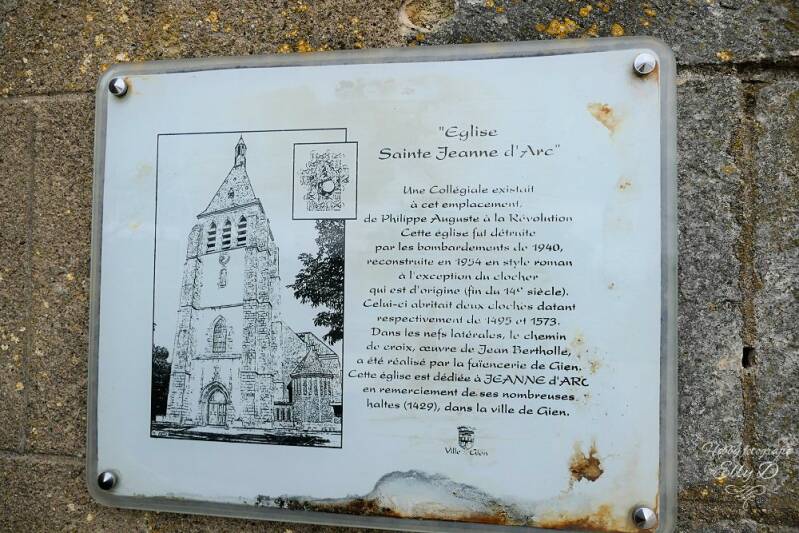 "Eglise
Sainte Jeanne d'Arc"
Une Collégiale existait
à cet emplacement,
de Philippe Auguste à la Révolution
Cette église fut détruite
par les bombardements de 1940,
reconstruite en 1954 en style roman
à l'exception du clocher
qui est d'origine (fin du 14e siècle).
Celui-ci abritait deux cloches datant
respectivement de 1495 et 1573.
Dans les nefs latérales, le chemin
de croix, œuvre de Jean Bertholle,
a été réalisé par la faïencerie de Gien.
Cette église est dédiée à JEANNE d'ARC
en remerciement de ses nombreuses
haltes (1429), dans la ville de Gien.
Ville Gien
Hobbyfotografie
Elly D